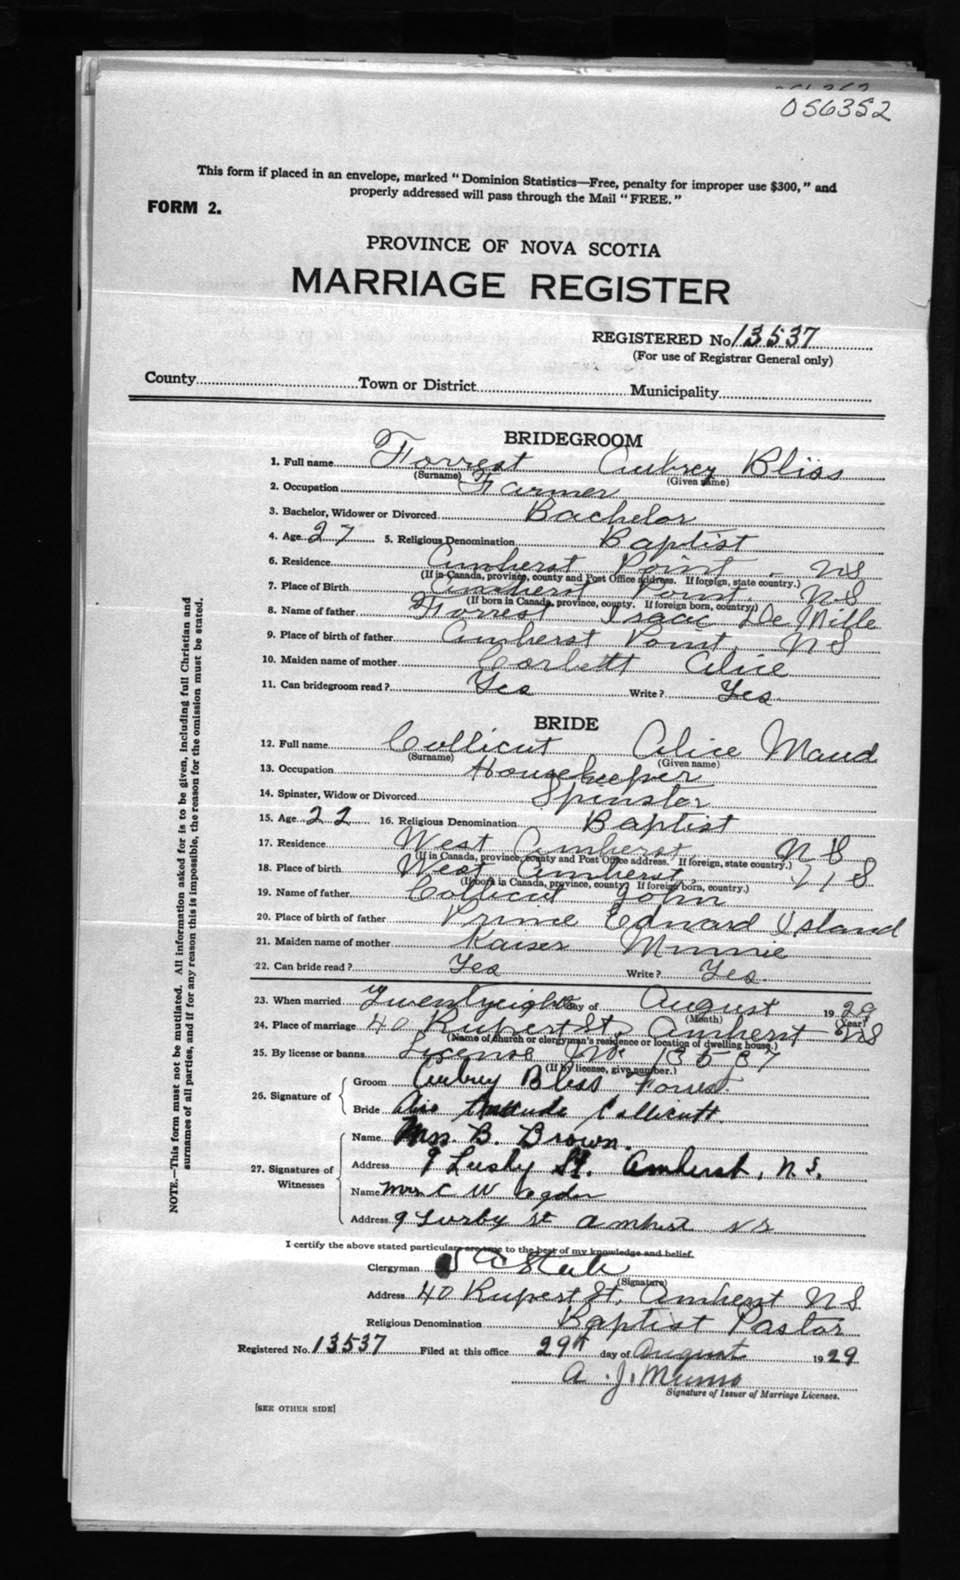 056352
This form if placed in an envelope, marked "Dominion Statistics—Free, penalty for improper use $300," and
properly addressed will pass through the Mail "FREE."
FORM 2.
PROVINCE OF NOVA SCOTIA
MARRIAGE REGISTER
REGISTERED No 13537
(For use of Registrar General only)
County Town or District Municipality
BRIDEGROOM
1. Full name Forrest Aubrey Bliss
(Surname) (Given name)
2. Occupation Farmer
3. Bachelor, Widower or Divorced Bachelor
4. Age 27 5. Religious Denomination Baptist
6. Residence Amherst Point, NS
(If in Canada, province, county and Post Office address. If foreign, state country.)
7. Place of Birth Amherst Point, NS
(If born in Canada, province, county. If foreign born, country.)
8. Name of father Forrest Isaac DeMille
9. Place of birth of father Amherst Point, NS
10. Maiden name of mother Corbett Alice
11. Can bridegroom read? Yes Write? Yes
BRIDE
12. Full name Collicut Alice Maud
(Surname) (Given name)
13. Occupation Housekeeper
14. Spinster, Widow or Divorced Spinster
15. Age 22 16. Religious Denomination Baptist
17. Residence West Amherst, NS
(If in Canada, province, county and Post Office address. If foreign, state country.)
18. Place of birth West Amherst, NS
(If born in Canada, province, county. If foreign born, country.)
19. Name of father Collicut John
20. Place of birth of father Prince Edward Island
21. Maiden name of mother Kaiser Minnie
22. Can bride read? Yes Write? Yes.
23. When married Twentyeighth day of August 1929
(Month) (Year)
24. Place of marriage 40 Rupert St, Amherst NS
(Name of church or clergyman's residence or location of dwelling house.)
25. By license or banns License No. 13537
(If by license, give number.)
26. Signature of
Groom Aubrey Bliss Forrest
Bride Collicutt.
27. Signatures of Witnesses
Name Mrs. B. Brown.
Address 9 St. Amherst, N.S.
Name Mrs C W Ogden
Address 9 St Amherst NS
I certify the above stated particulars are true to the best of my knowledge and belief.
Clergyman
(Signature)
Address 40 Rupert St, Amherst NS
Religious Denomination Baptist Pastor
Registered No. 13537 Filed at this office 29th day of August 1929
A. J. Munro
Signature of Issuer of Marriage Licenses.
[SEE OTHER SIDE]
NOTE.—This form must not be mutilated. All information asked for is to be given, including full Christian and
surnames of all parties, and if for any reason this is impossible, the reason for the omission must be stated.